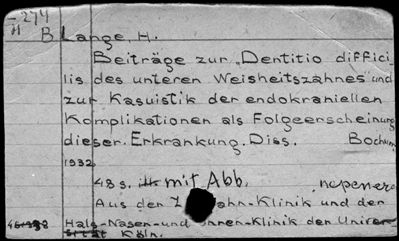 274
B Lange, H.
Beiträge zur „Dentitio diffici-
lis des unteren Weisheitszahnes" und
zur Kasuistik der endokraniellen
Komplikationen als Folgeerscheinung
dieser Erkrankung. Diss. Bochum
1932
48 s. mit Abb.
Aus der Zahn-Klinik und der
Hals-Nasen-und Ohren-Klinik der Univer-
sität Köln.